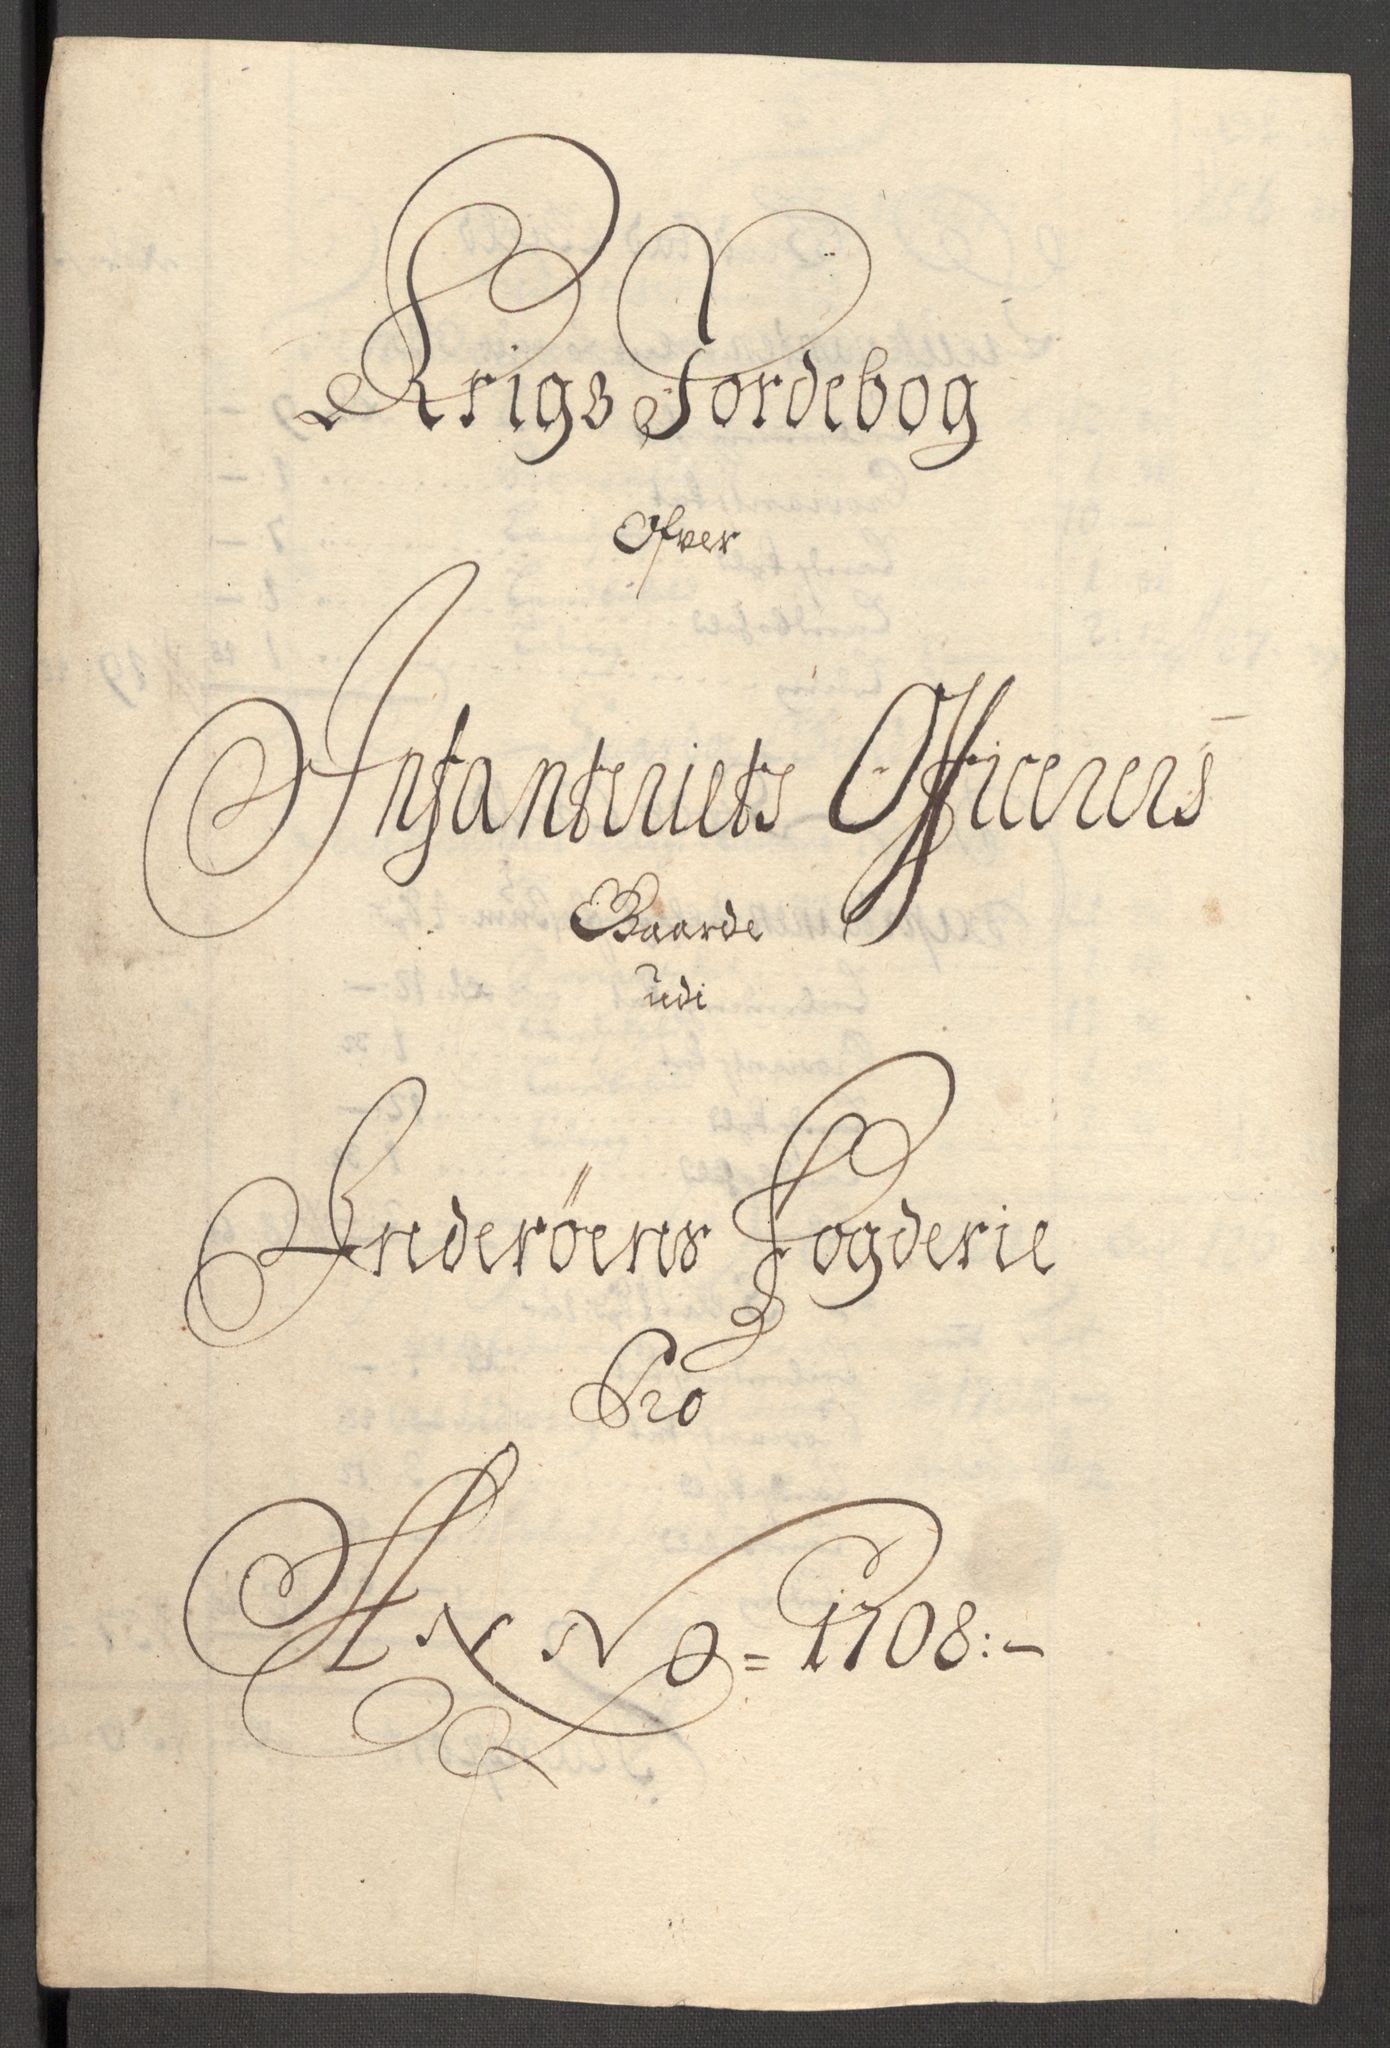 Krigs Jordebog
Ofver
Infanteriets Officerers
Gaarde
udi
Inderöens Fogderie
Pro
ANNO = 1708:-